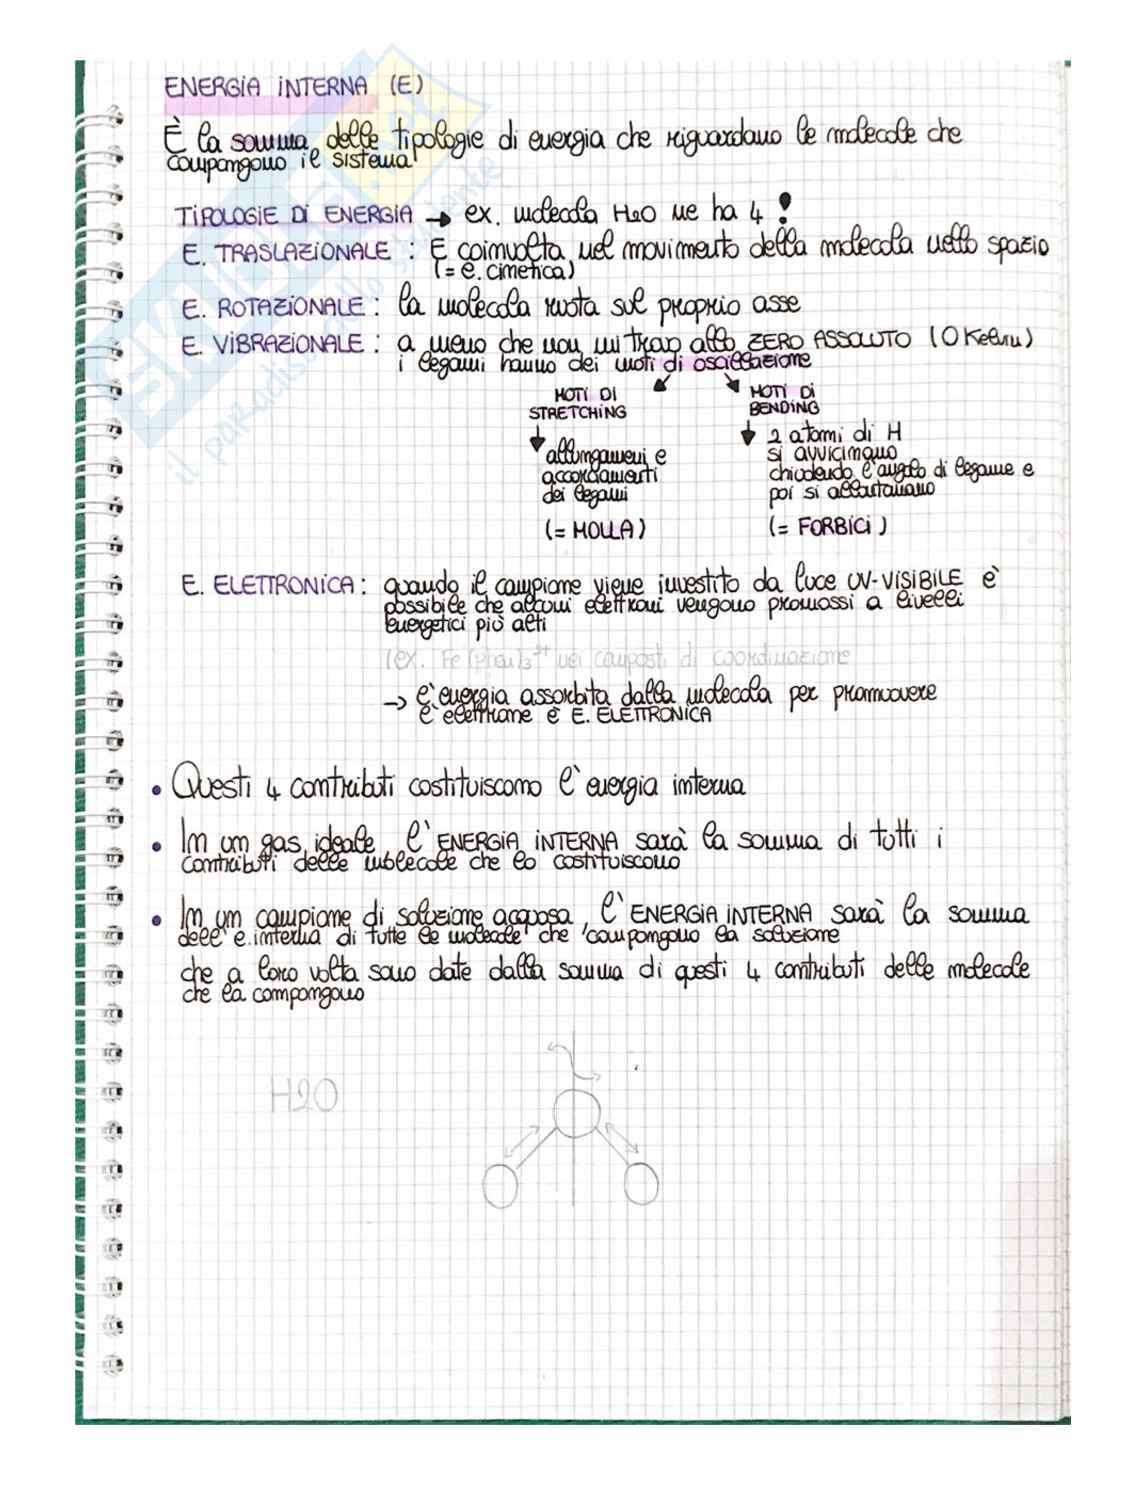 ENERGIA INTERNA (E)
È la somma delle tipologie di energia che riguardano le molecole che
compongono il sistema
TIPOLOGIE DI ENERGIA → ex. molecola H2O ne ha 4 !
E. TRASLAZIONALE : È coinvolta nel movimento della molecola nello spazio
(= e. cinetica)
E. ROTAZIONALE : la molecola ruota sul proprio asse
E. VIBRAZIONALE : a meno che non mi trovo allo ZERO ASSOLUTO (0 Kelvin)
i legami hanno dei moti di oscillazione
MOTI DI
STRETCHING
allungamenti e
accorciamenti
dei legami
(= MOLLA)
MOTI DI
BENDING
2 atomi di H
si avvicinano
chiudendo l'angolo di legame e
poi si allontanano
(= FORBICI)
E. ELETTRONICA : quando il campione viene investito da luce UV-VISIBILE è
possibile che alcuni elettroni vengono promossi a livelli
energetici più alti
(ex. Fe(phen)3²⁺ nei composti di coordinazione
→ l'energia assorbita dalla molecola per promuovere
l'elettrone è E. ELETTRONICA
• Questi 4 contributi costituiscono l'energia interna
• In un gas ideale, l'ENERGIA INTERNA sarà la somma di tutti i
contributi delle molecole che lo costituiscono
• In un campione di soluzione acquosa, l'ENERGIA INTERNA sarà la somma
dell'e. interna di tutte le molecole che compongono la soluzione
che a loro volta sono date dalla somma di questi 4 contributi delle molecole
che la compongono
H2O
SKUOLA.net
il paradiso dello studente